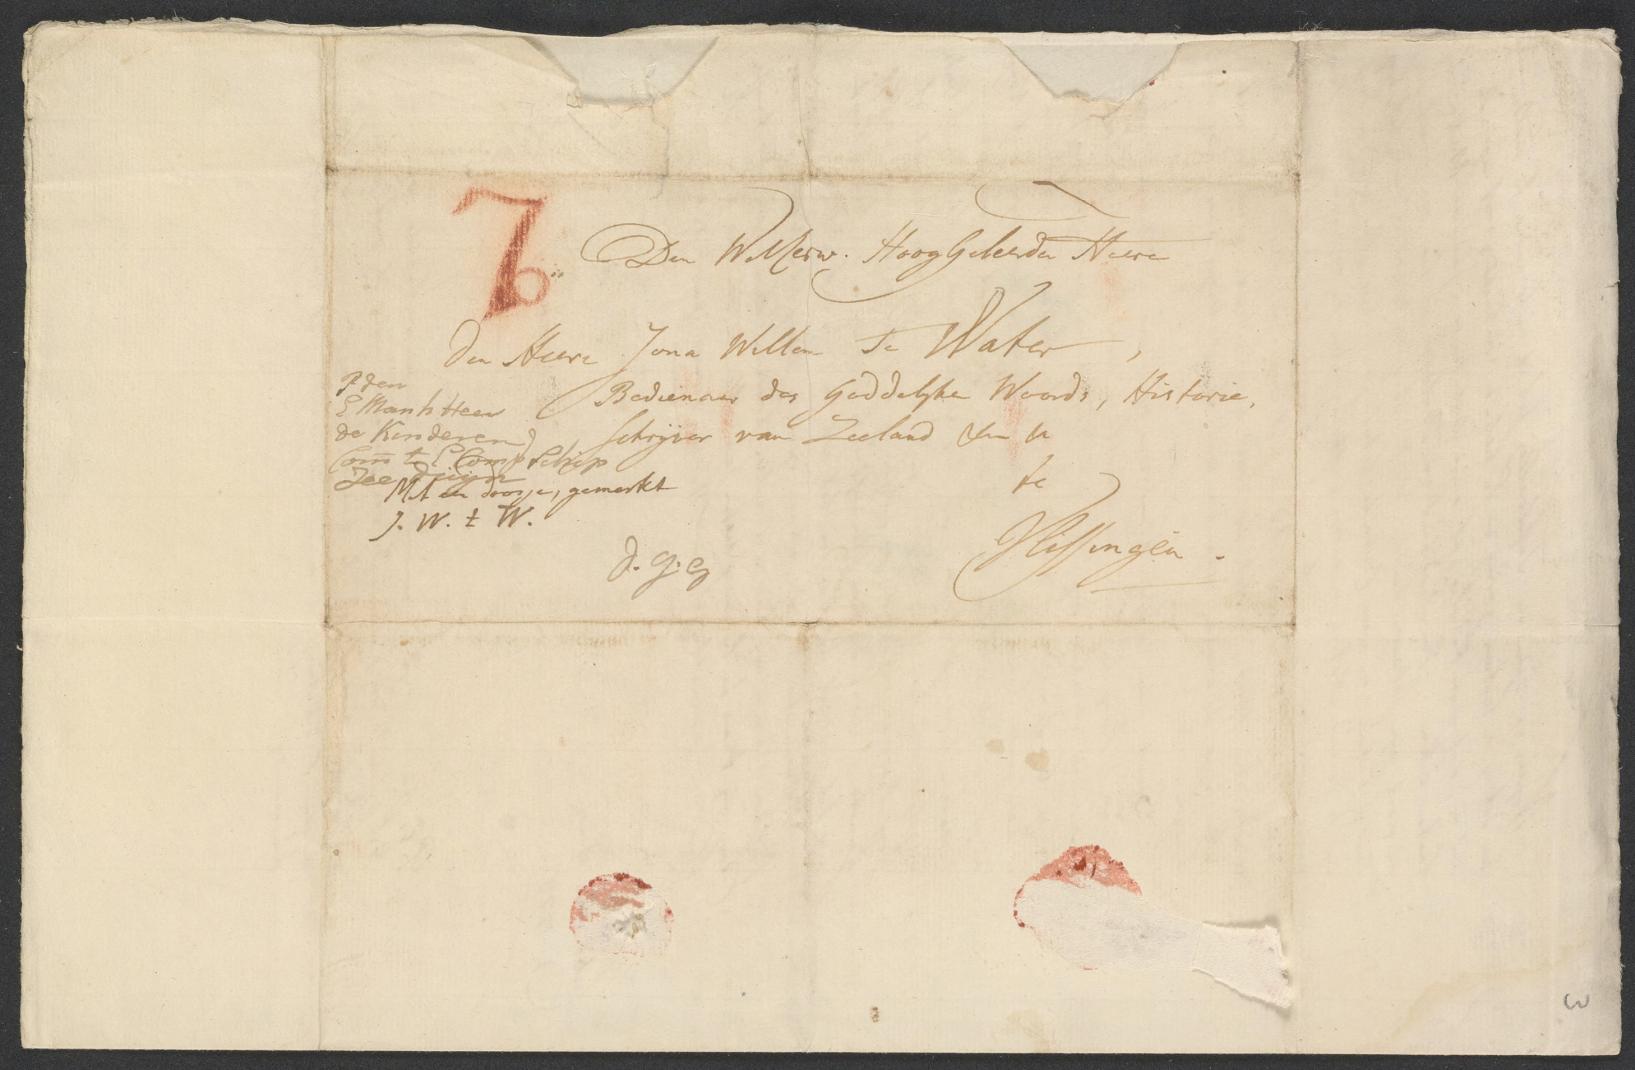 Den WelEerw. Hooggeleerden Heere
Den Heere Jona Willem Te Water,
Bedienaar des Goddelyken Woords, Historie,
schryver van Zeeland &
te
Vlissingen.
P den
E Manh Heer
de Kinderen
Com t E. Comp Schip
Zee
Met een doosje, gemerkt
J. W. t W.
d. g. g
3